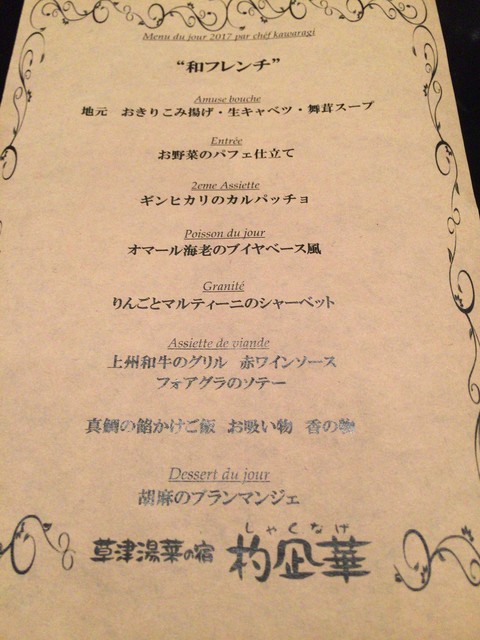 Menu du jour 2017 par chéf kawaragi
“和フレンチ”
Amuse bouche
地元　おきりこみ揚げ・生キャベツ・舞茸スープ
Entrée
お野菜のパフェ仕立て
2eme Assiette
ギンヒカリのカルパッチョ
Poisson du jour
オマール海老のブイヤベース風
Granité
りんごとマルティーニのシャーベット
Assiette de viande
上州和牛のグリル　赤ワインソース
フォアグラのソテー
真鯛の餡かけご飯　お吸い物　香の物
Dessert du jour
胡麻のブランマンジェ
しゃくなげ
草津湯菜の宿　杓凪華